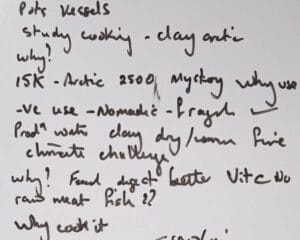 Pots Vessels
study cooking - clay arctic
why?
15K - Arctic 2500 Mystery why use
-ve use - Nomadic - fragile
Prodn water clay dry/warm fire
climate challenge
why? Food digest better Vit C No
raw meat fish
Why cook it